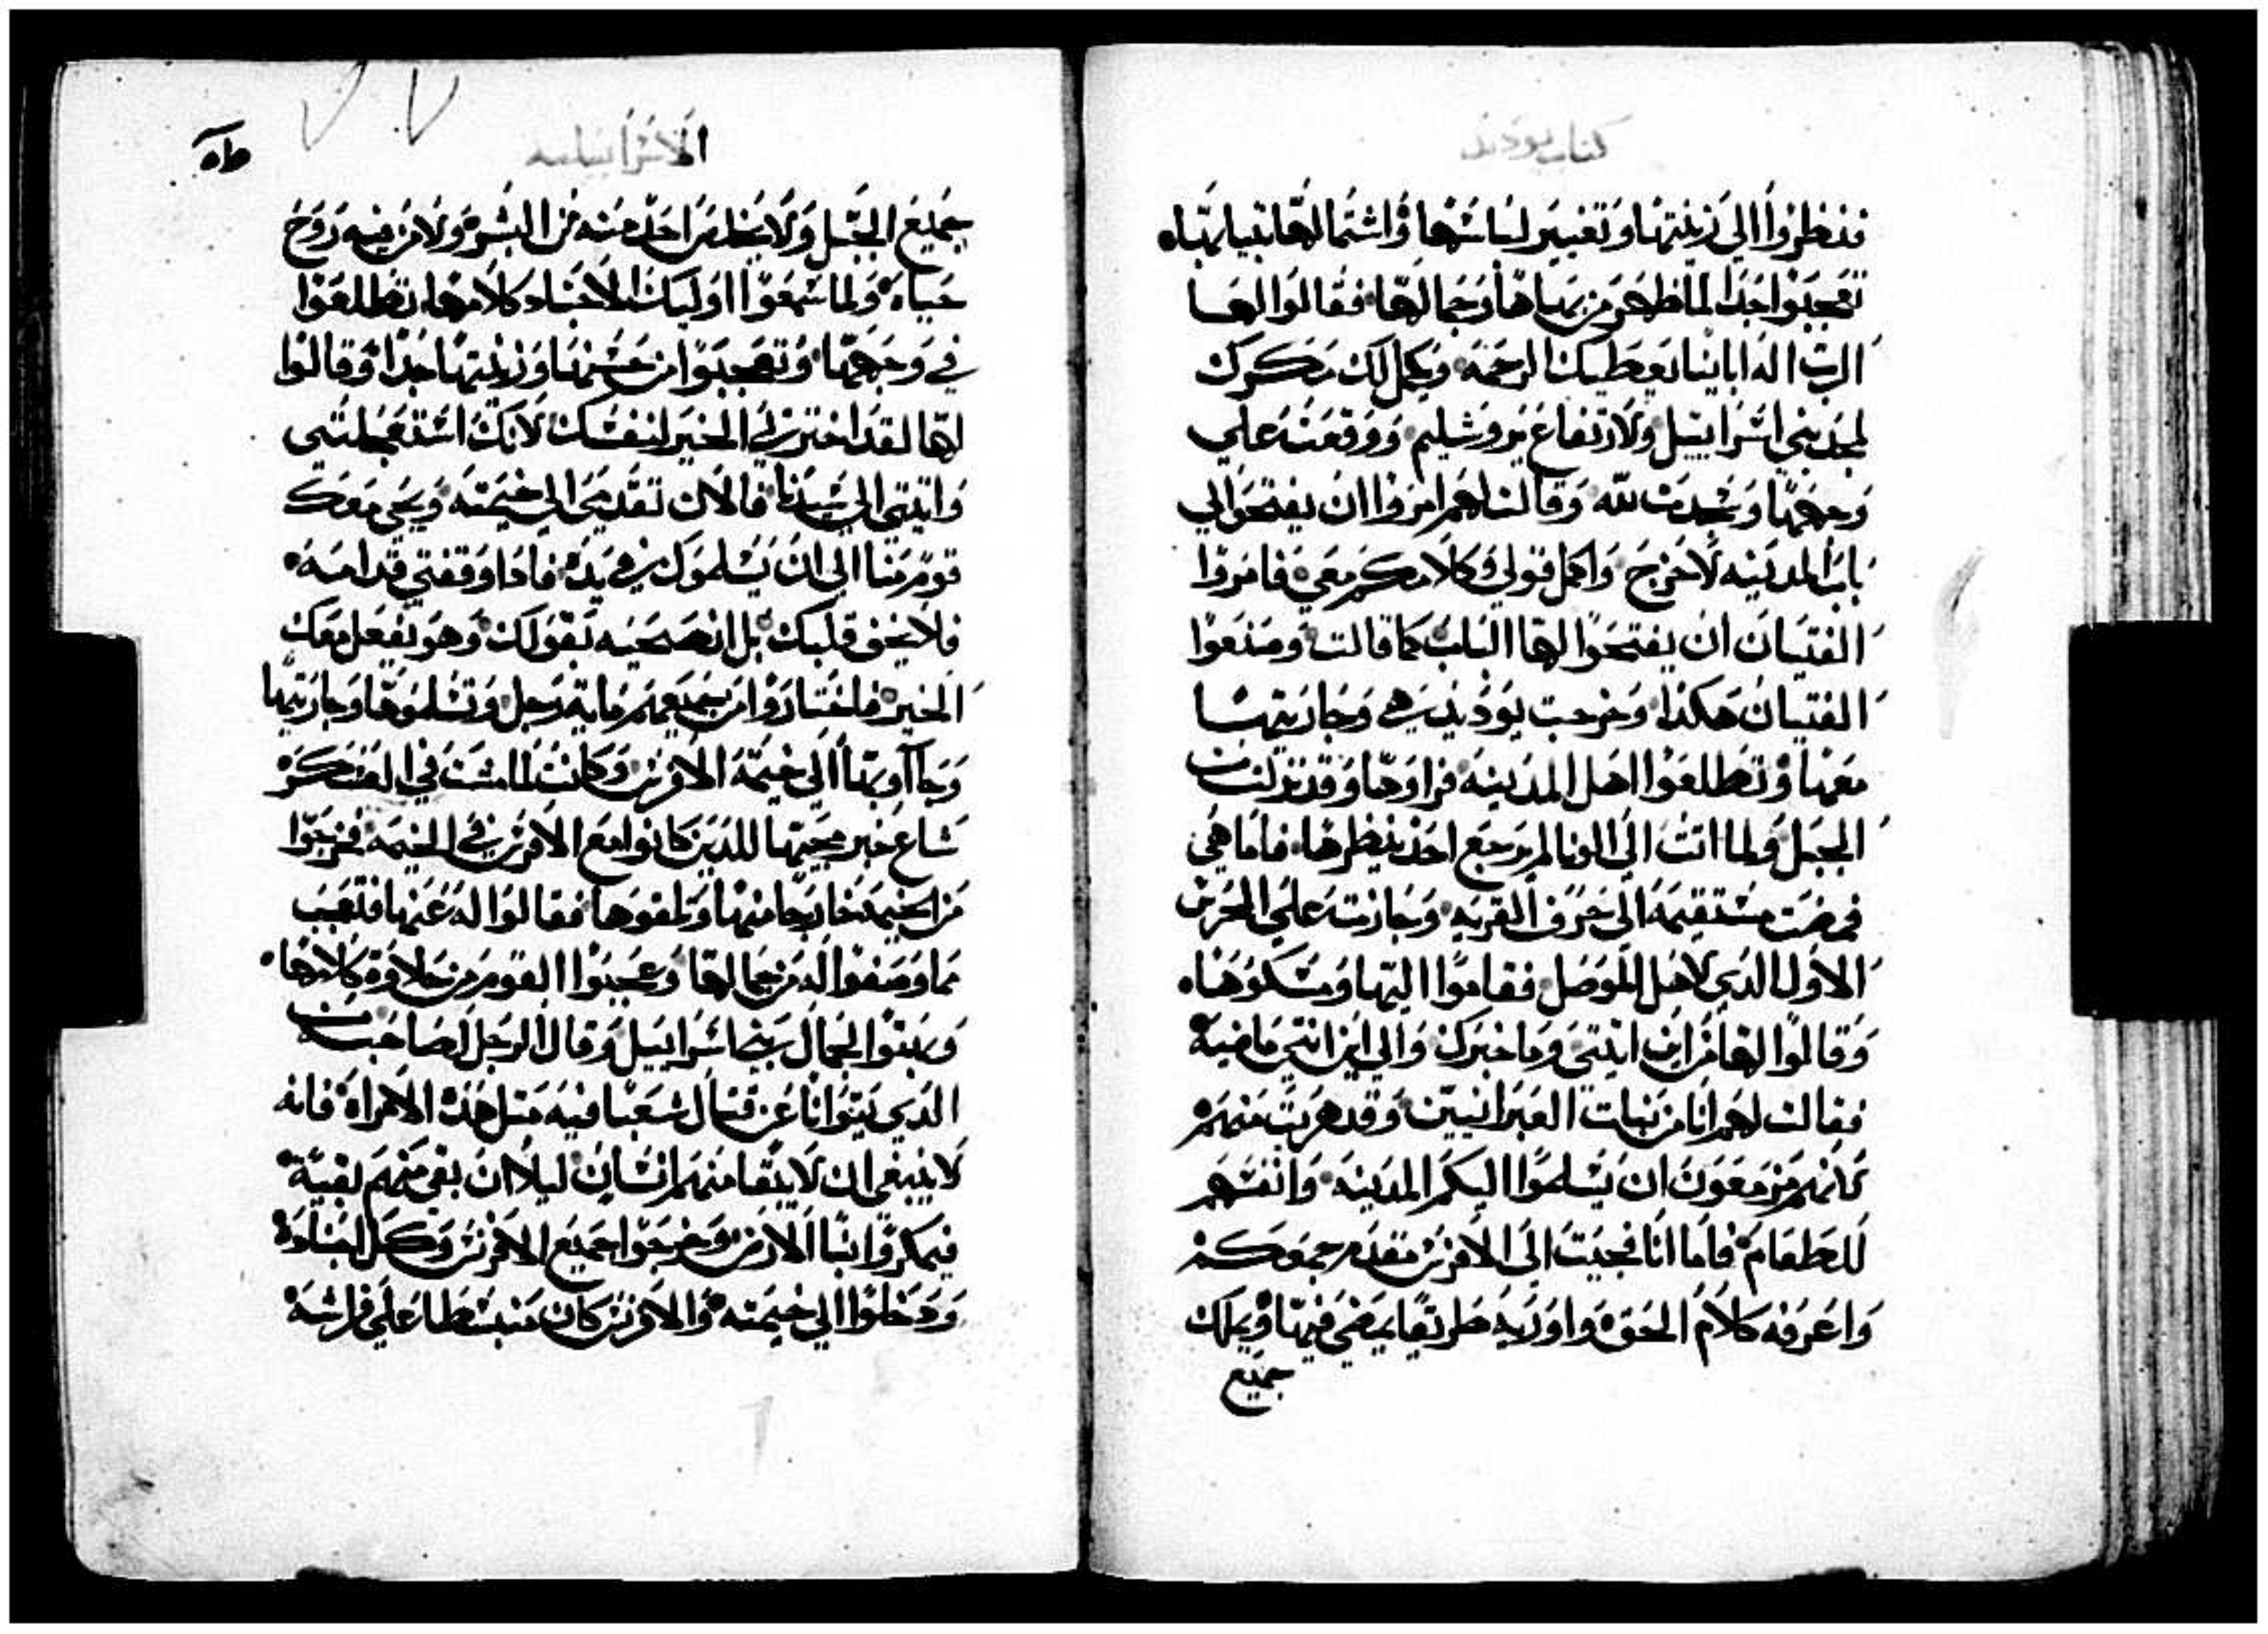 كتاب يوديت
فنظروا الي زينتها وتغيير لباسها واشتمالها بثيابها
تعجبوا جدا لما ظهر من بهاها وجمالها فقالوا لها
الرب اله اباينا يعطيك الرحمه ويكمل لك مكرك
لمجد بني اسراييل ولارتفاع يروشليم ووقعت علي
وجهها وسجدت لله وقالت لهم امروا ان يفتحوا لي
باب المدينه لاخرج واكمل قولي وكلامكم معي فامروا
الفتيان ان يفتحوا لها الباب كما قالت وصنعوا
الفتيان هكذا وخرجت يوديت هي وجاريتها
معها وتطلعوا اهل المدينه فراوها وقد نزلت من
الجبل ولما اتت الي الوطا لم يرجع احد ينظرها فاما هي
فمضت مستقيمه الي حرف القريه وجازت علي الحرس
الاول الذي لاهل الموصل فقاموا اليها ومسكوها
وقالوا لها من اين اتيتي وما خبرك والي اين انتي ماضيه
فقالت لهم انا من بنات العبرانيين وقد هربت منهم
لانهم مزمعون ان يسلموا اليكم المدينه وانفسهم
للطعام فاما انا فجيت الي الافرنس مقدم جمعكم
واعرفه كلام الحق واوريه طريقا يمضي فيها ويملك
جميع
الاسراييليه
جميع الجبل ولا يخلص احد منه من البشر ولا من فيه روح
حياه ولما سمعوا اوليك الاجناد كلامها تطلعوا
في وجهها وتعجبوا من حسنها وزينتها جدا وقالوا
لها لقد اخترتي الخير لنفسك لانك استعجلتي
واتيتي الي سيدنا فالان تقدمي الي خيمته ويجي معك
قوم منا الي ان يسلموك في يده فاذا وقفتي قدامه
فلا يخف قلبك بل انصحيه بقولك وهو يفعل معك
الخير فاختاروا من جميعهم مايه رجل وتسلموها وجاريتها
وجاآو بها الي خيمة الافرنس وكانت لما مشت في العسكر
شاع خبر مجيتها للذين كانوا مع الافرنس في الخيمه فخرجوا
من الخيمه خارجا منها وتلقوها فقالوا له عنها فتعجب
مما وصفوا له من جمالها وعجبوا القوم من حلاوة كلامها
وبهتوا لجمال بني اسراييل وقال الرجل لصاحبه من
الذي يتوانا عن قتال شعبا فيه مثل هذه الامراه فانه
لا ينبغي ان لا يبقا منهم انسان ليلا ان بقي منهم بقية
فيمكروا بنا الارض وخرجوا جميع الافرنس وكل اجناده
ودخلوا الي خيمته والافرنس كان منبسطا علي فراشه